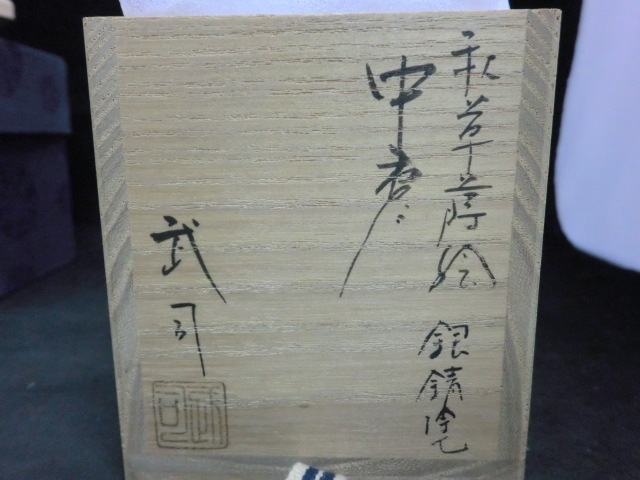 秋草蒔絵 銀錆塗
中棗
武司